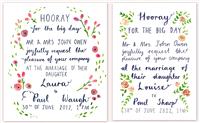 HOORAY
for the big day!
MR & MRS JOHN OWEN
joyfully request the
pleasure of your company
AT THE MARRIAGE OF THEIR
DAUGHTER
Laura
Paul Waugh
30TH OF JUNE 2012, 1PM
Hooray
FOR THE BIG DAY
Mr & Mrs John Owen
joyfully request the
PLEASURE OF YOUR COMPANY
at the marriage of
their daughter
Louise
Paul Sharp
30TH OF JUNE 2012, 1PM